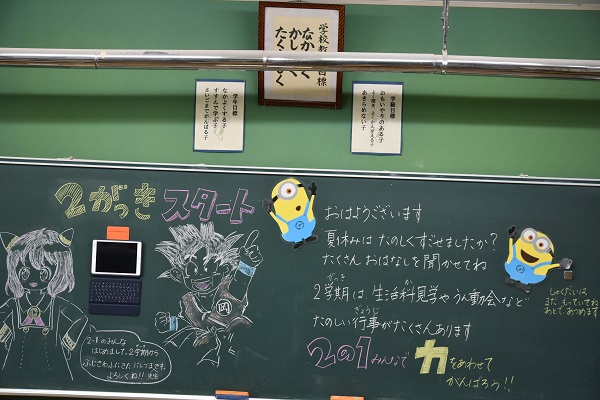 学校教育目標
なかよく
かしこく
たくましく
学年目標
なかよくする子
すすんで学ぶ子
さいごまでがんばる子
学級目標
おもいやりのある子
よく聞き、よくかんがえる子
あきらめない子
2がっきスタート
おはようございます
夏休みは たのしくすごせましたか?
たくさん おはなしを聞かせてね
2学期は、生活科見学やうん動会など
たのしい行事がたくさんあります
2の1みんなで力をあわせて
がんばろう!!
2-1のみんな
はじめまして。2学期から
よろしくね!! 先生
しゅくだいは
まだ、もっていてね
あとで、あつめます